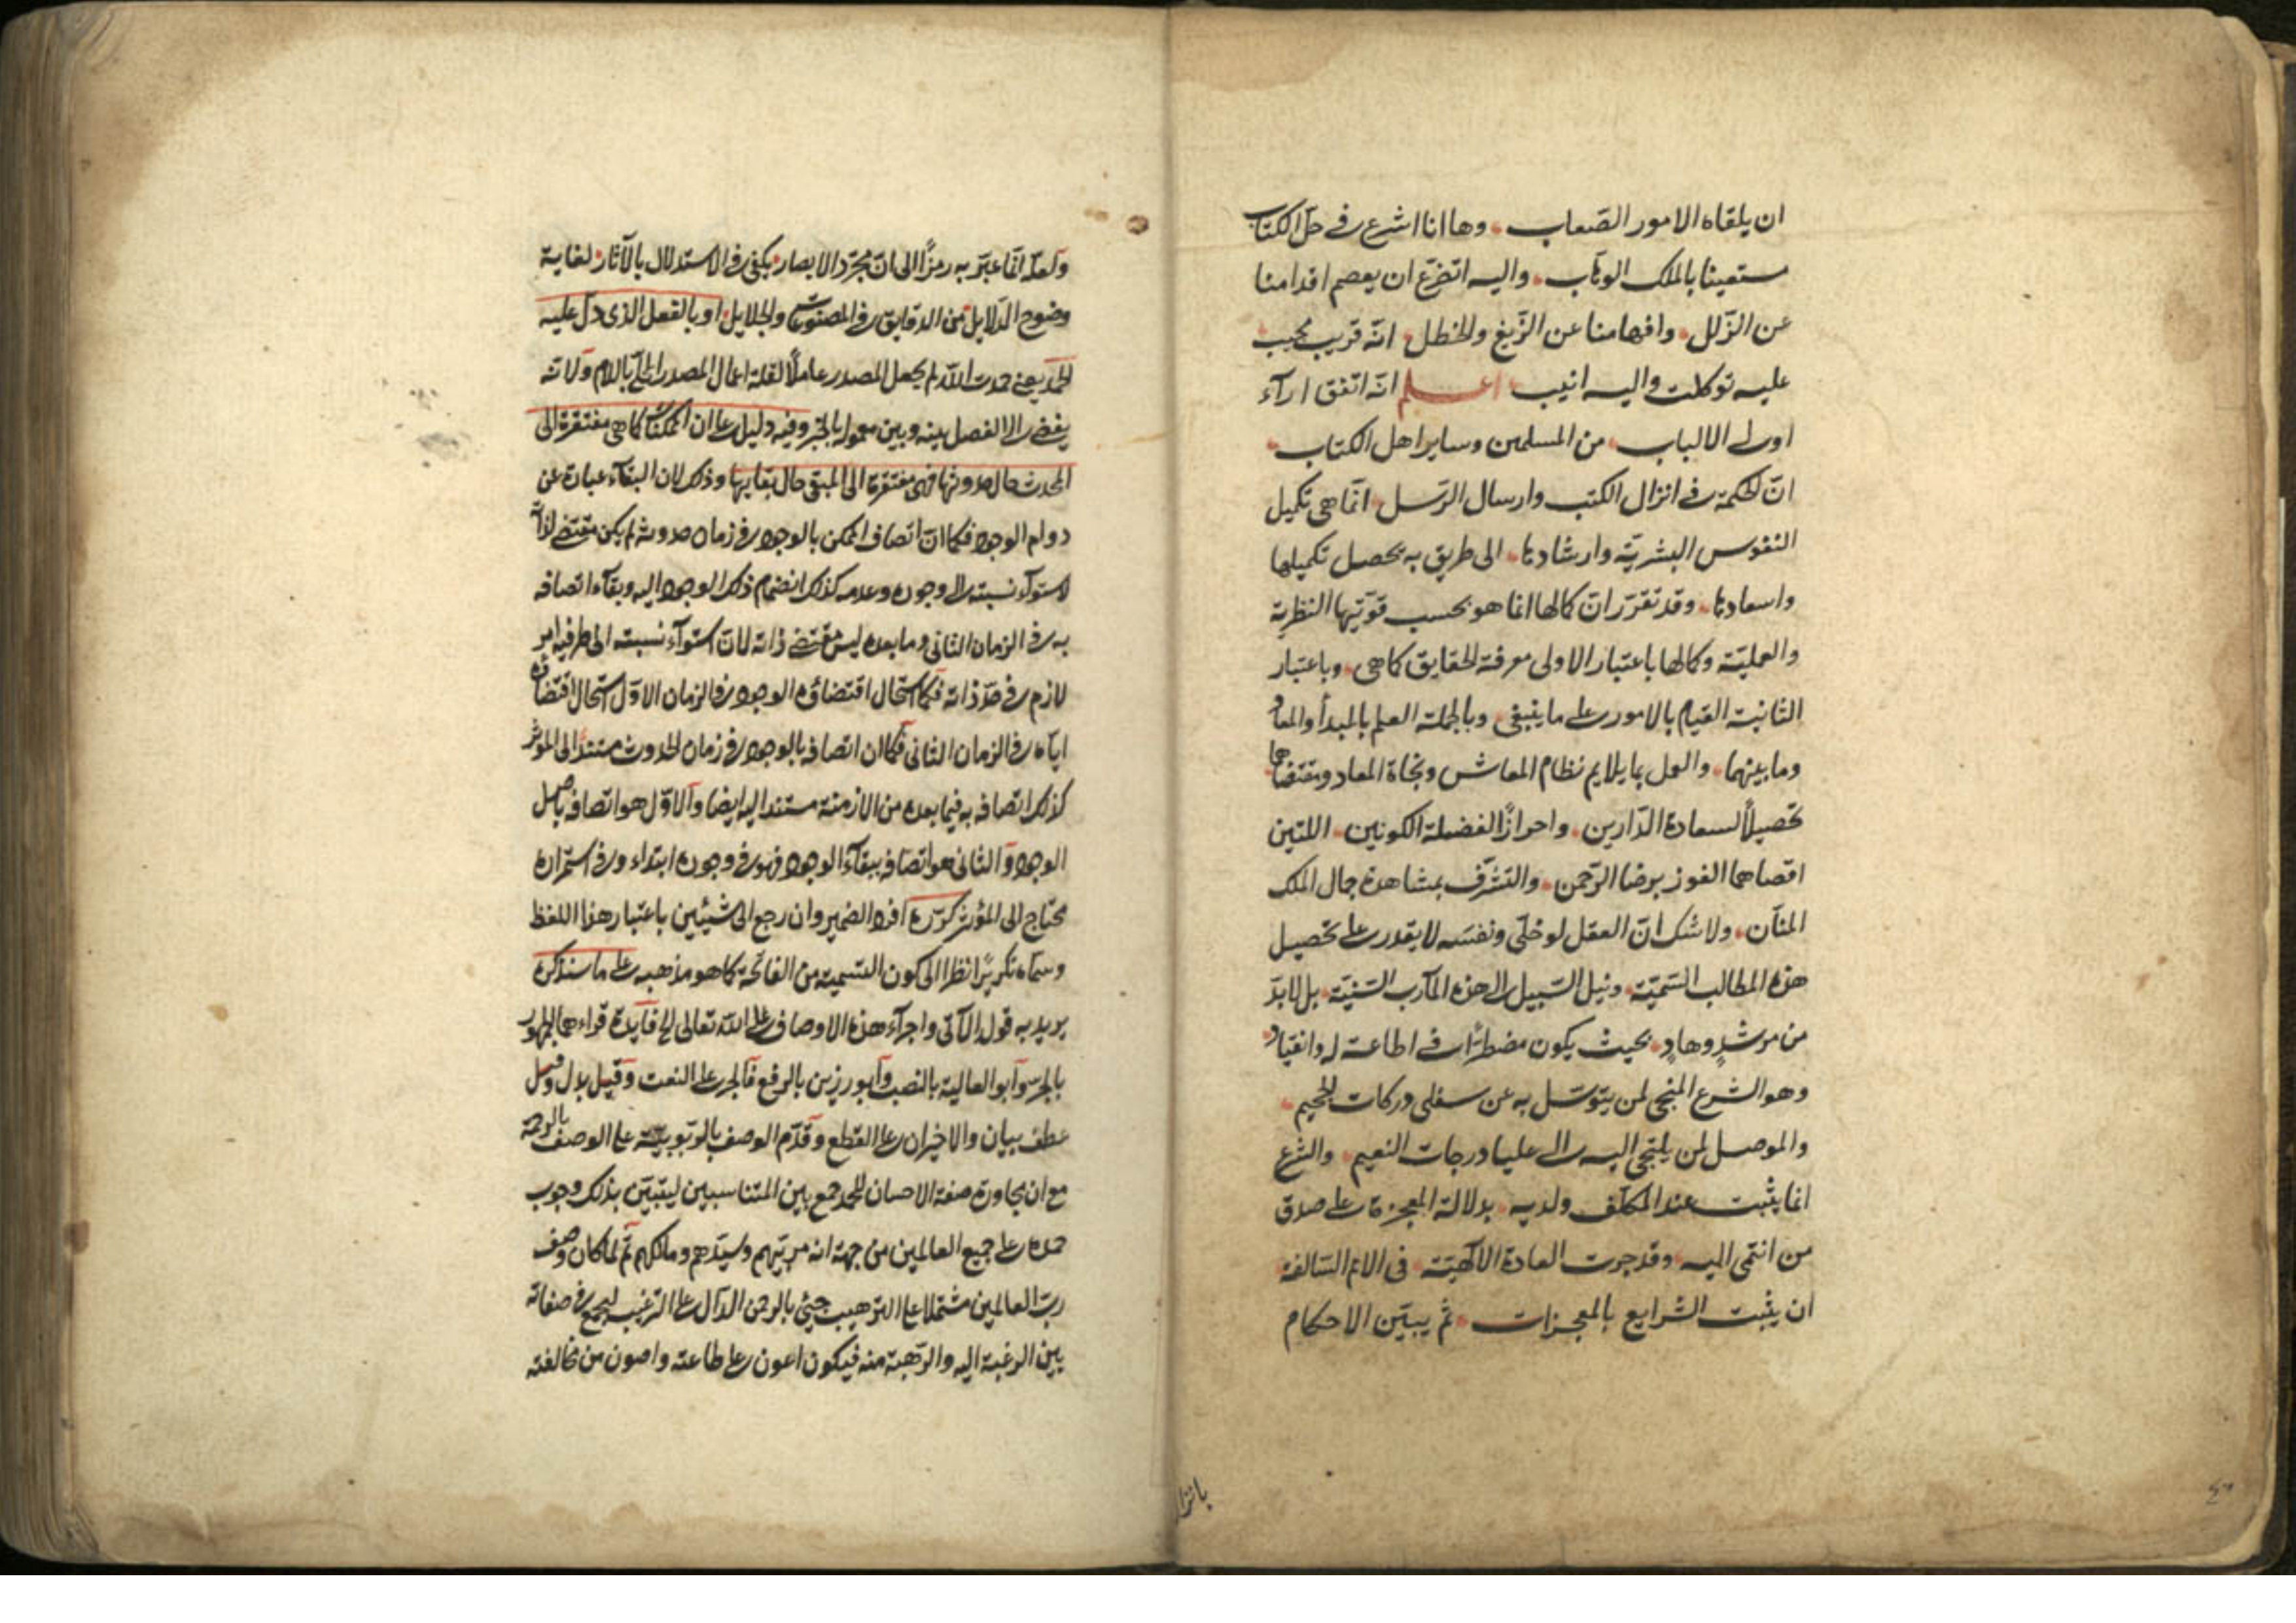 ان يلقاه الامور الصعاب وها انا اشرع فى حل الكتاب
مستعينا بالملك الوهاب واليه اتضرع ان يعصم اقدامنا
عن الزلل وافهامنا عن الزيغ والخطل انه قريب مجيب
عليه توكلت واليه انيب اعلم انه اتفق اراء
اولى الالباب من المسلمين وساير اهل الكتاب
ان الحكمة فى انزال الكتب وارسال الرسل انما هى تكميل
النفوس البشرية وارشادها الى طريق به يحصل تكميلها
واسعادها وقد تقرر ان كمالها انما هو بحسب قوتيها النظرية
والعملية وكمالها باعتبار الاولى معرفة الحقايق كما هى وباعتبار
الثانية القيام بالامور على ما ينبغى وبالجملة العلم بالمبدأ والمعاد
وما بينهما والعمل بما يلايم نظام المعاش ونجاة المعاد ومقتضاهما
تحصيلاً لسعادة الدارين واحرازًا لفضيلة الكونين اللتين
اقصاهما الفوز برضا الرحمن والتشرف بمشاهدة جمال الملك
المنان ولا شك ان العقل لو خلى ونفسه لا يقدر على تحصيل
هذه المطالب السمية ونيل السبيل الى هذه المآرب السنية بل لا بد
من مرشدٍ وهادٍ بحيث يكون مضطرًا فى اطاعته له وانقياد
وهو الشرع المنجى لمن يتوسل به عن سفلى دركات الجحيم
والموصل لمن يلتجى اليه الى عليا درجات النعيم والشرع
انما يثبت عند المكلف ولديه بدلالة المعجزة على صدق
من انتمى اليه وقد جرت العادة الالهية فى الامم السالفة
ان يثبت الشرايع بالمعجزات ثم يبين الاحكام
ولعله انما عبر به رمزًا الى ان مجرد الابصار يكفى فى الاستدلال بالآثار لغاية
وضوح الدلايل من الدقايق فى المصنوعات والجلايل او بالفعل الذى دل عليه
الحمد يعنى حمدت الله لم يجعل المصدر عاملاً لقلة اعمال المصدر المحلى باللام ولانه
يفضى الى الفصل بينه وبين معموله بالخبر وفيه دليل على ان الممكنات كما هى مفتقرة الى
المحدث حال حدوثها فهى مفتقرة الى المبقى حال بقايها وذلك لان البقاء عبارة عن
دوام الوجود فكما ان اتصاف الممكن بالوجود فى زمان حدوثه لم يكن مقتضى لذاته
لاستواء نسبته الى وجوده وعدمه كذلك انضمام ذلك الوجود اليه وبقاء اتصافه
به فى الزمان الثانى وما بعده ليس مقتضى ذاته لان استواء نسبته الى طرفيه امر
لازم فى حد ذاته فكما استحال اقتضاؤه الوجود فى الزمان الاول استحال اقتضاؤه
اياه فى الزمان الثانى فكما ان اتصافه بالوجود فى زمان الحدوث مستند الى المؤثر
كذلك اتصافه به فيما بعده من الازمنة مستند اليه ايضا والاول هو اتصافه باصل
الوجود والثانى هو اتصافه ببقاء الوجود فهو فى وجوده ابتداء وفى استمراره
محتاج الى المؤثر كرره افرد الضمير وان رجع الى شيئين باعتبار هذا اللفظ
وسماه تكريرًا نظرا الى كون التسمية من الفاتحة كما هو مذهبه على ما سنذكره
يريد به قوله الآتى واجراء هذه الاوصاف على الله تعالى الخ فايدة قراءها الجمهور
بالجر وابو العالية بالنصب وابو رزين بالرفع فالجر على النعت وقيل بدل وقيل
عطف بيان والاخيران على القطع وقدم الوصف بالربوبية على الوصف بالرحمة
مع ان مجاورة صفة الاحسان للحمد جمع بين المتناسبين ليتبين بذلك وجوب
حمده على جميع العالمين من جهة انه مربيهم وسيدهم ومالكهم ثم لما كان وصف
رب العالمين مشتملا على الترهيب جيئ بالرحمن الدال على الترغيب ليجمع فى صفاته
بين الرغبة اليه والرهبة منه فيكون اعون على طاعته واصون من مخالفته